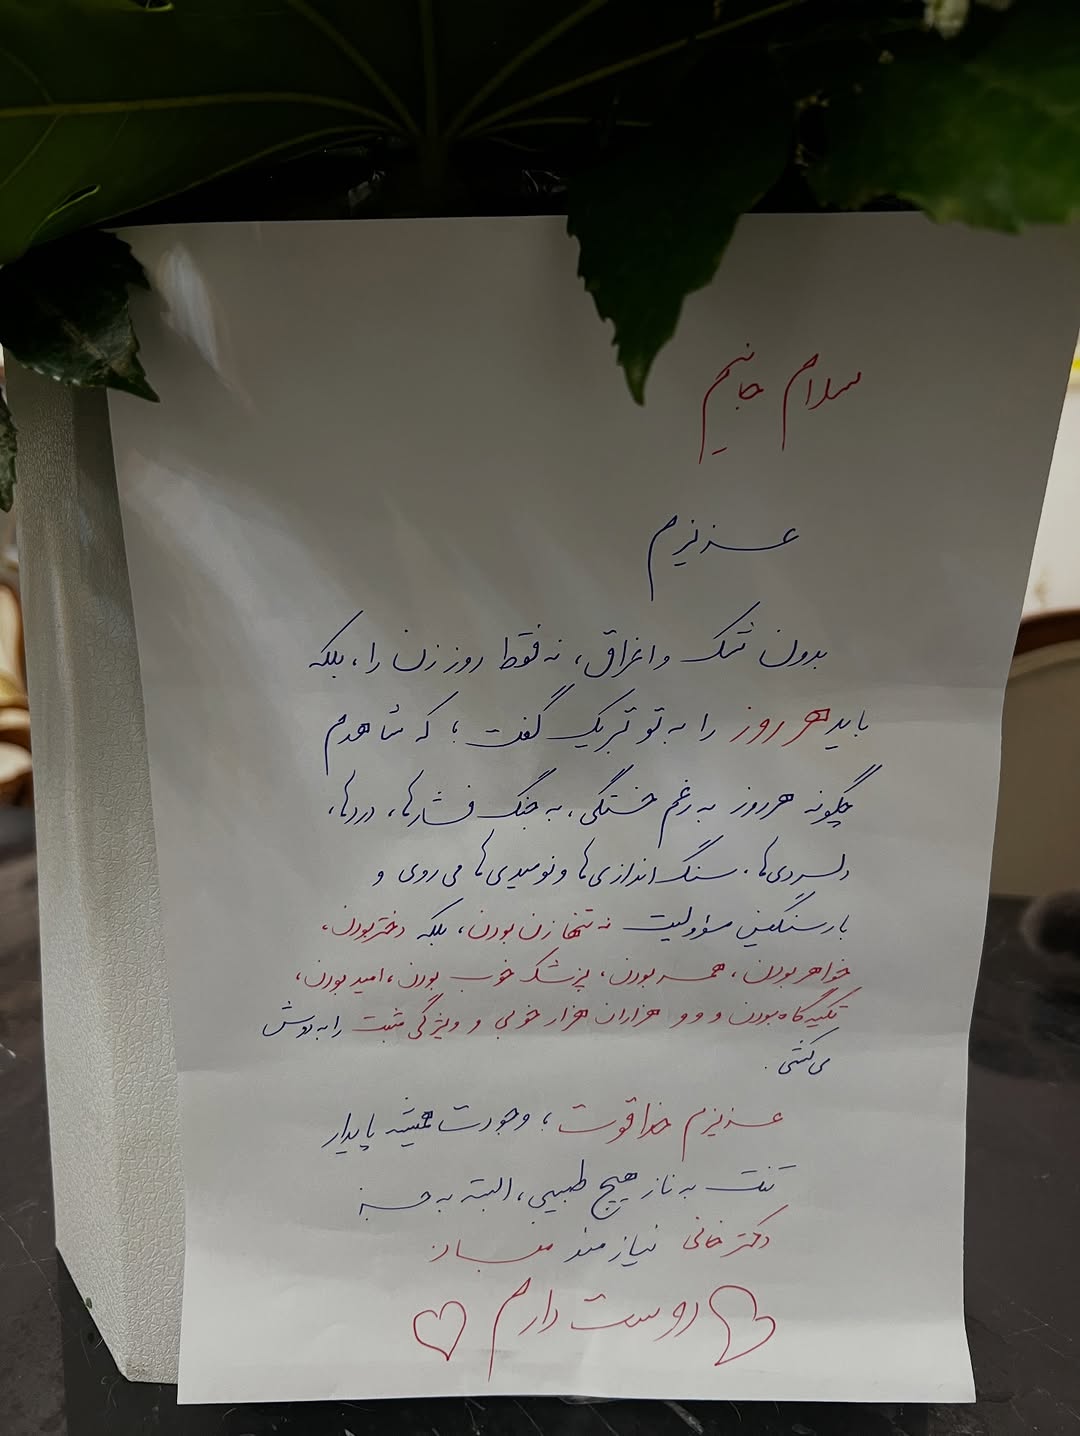 سلام جانیم
عزیزم
بدون شک و اغراق، نه فقط روز زن را، بلکه
باید هر روز را به تو تبریک گفت؛ که شاهدم
چگونه هر روز به رغم خستگی، به جنگ فشارها، دردها،
دلسردی‌ها. سنگ‌اندازی‌ها و نومیدی‌ها می‌روی و
بار سنگین مسؤولیت نه تنها زن بودن، بلکه دختر بودن،
خواهر بودن، همسر بودن، پزشک خوب بودن، امید بودن،
تکیه‌گاه بودن و و و هزاران هزار خوبی و ویژگی مثبت را به دوش
می‌کشی.
عزیزم خدا قوت؛ وجودت همیشه پایدار
تنت به ناز هیچ طبیبی، البته به جز
دکتر خانی نیازمند مباد
دوست دارم